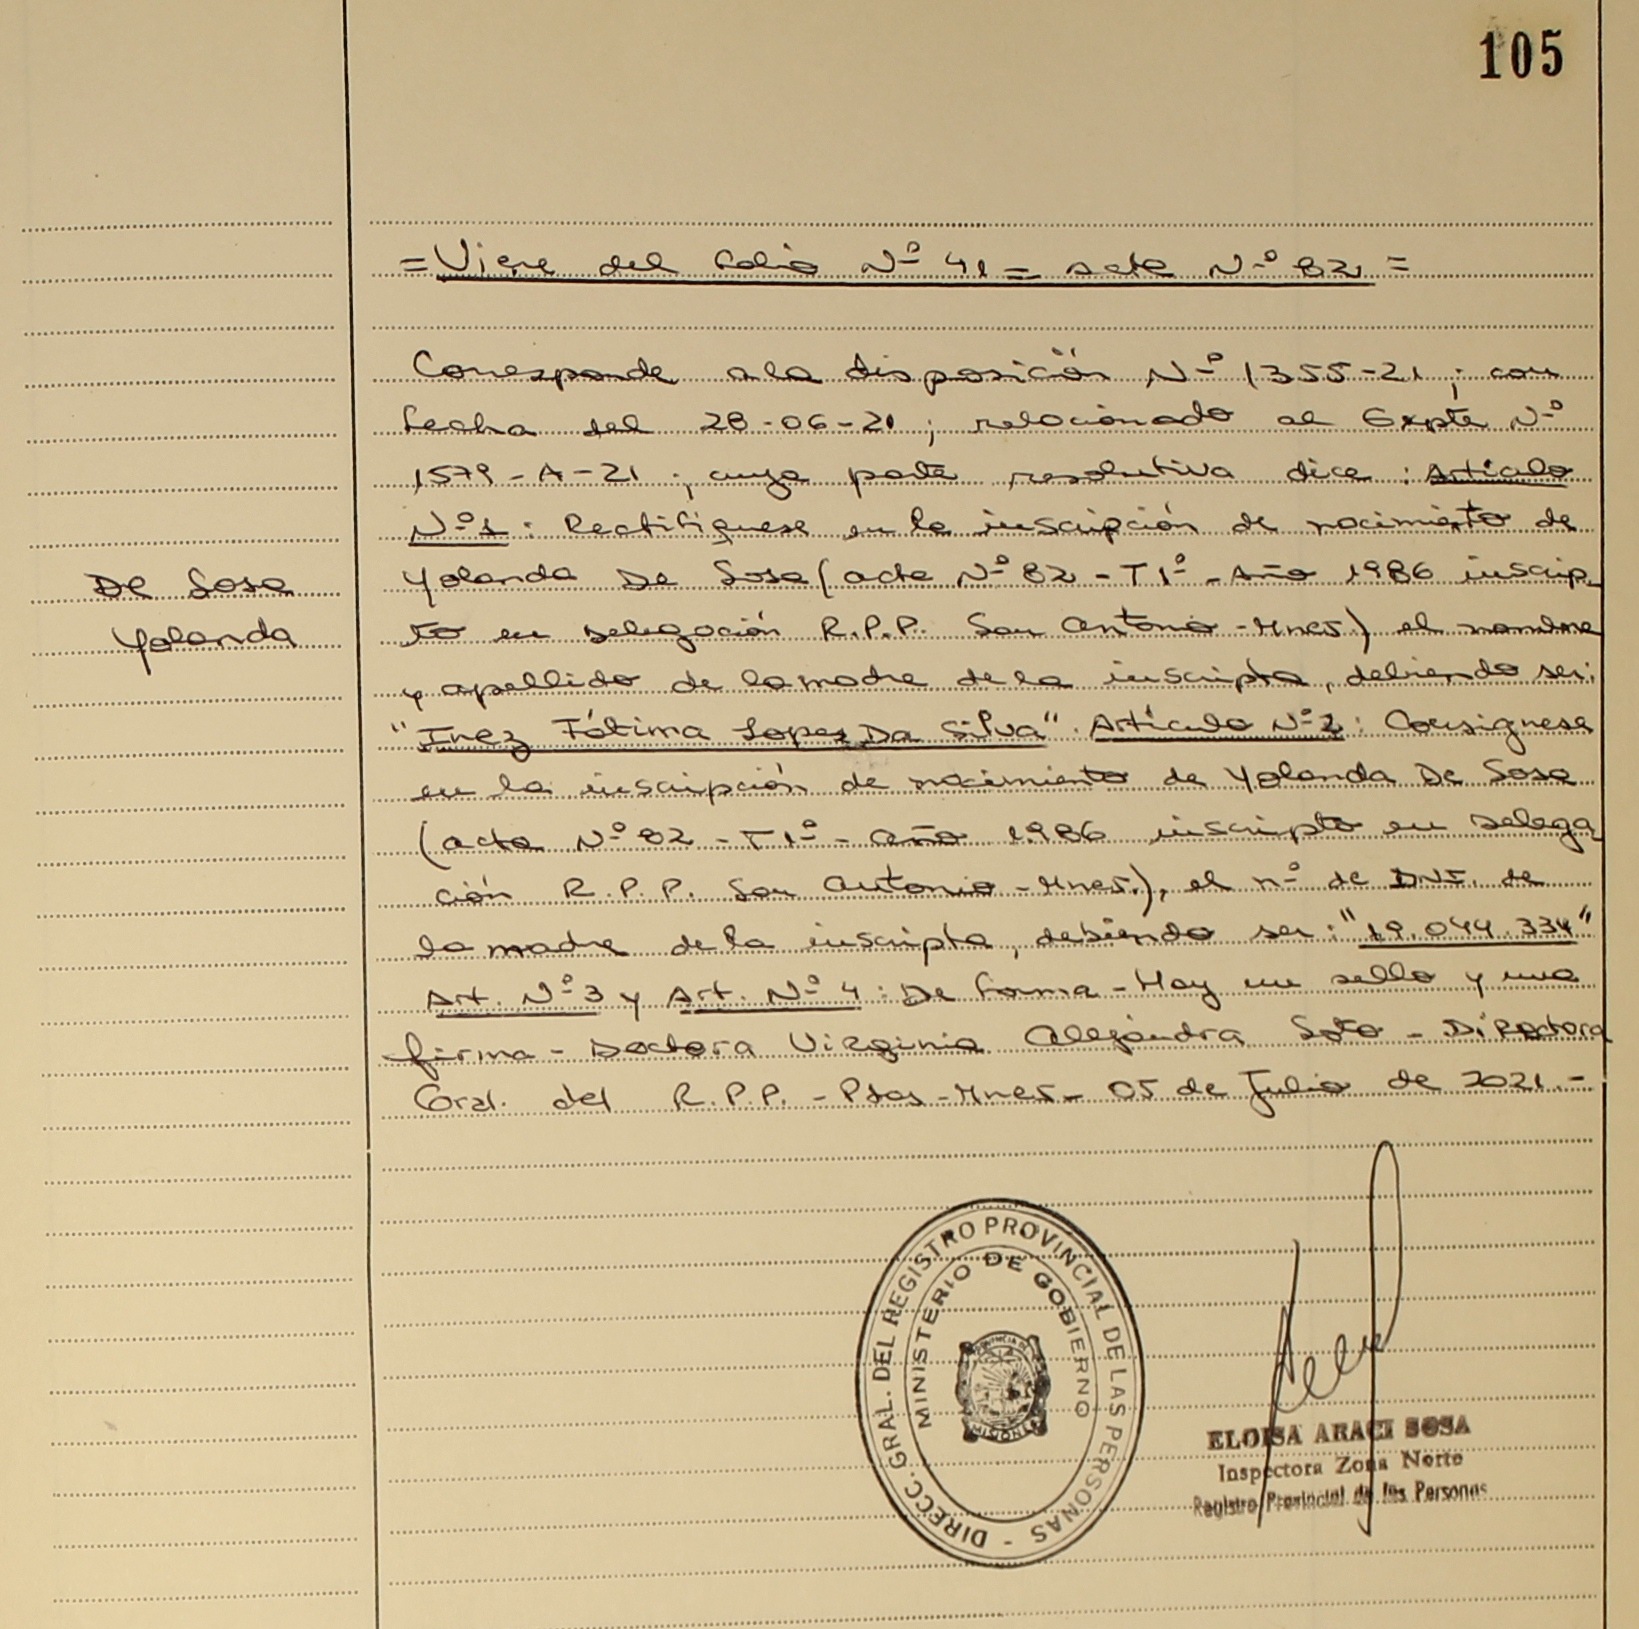 105
= Viene del folio Nº 41 = acta Nº 82 =
Corresponde a la disposición Nº 1355-21 ; con
fecha del 28-06-21 ; relacionado al Expte Nº
1579-A-21 ; cuya parte resolutiva dice : Artículo
Nº 1 : Rectifíquese en la inscripción de nacimiento de
De Sosa
Yolanda De Sosa (acta Nº 82 - T 1º - Año 1986 inscrip-
Yolanda
to en Delegación R.P.P. San Antonio - Mnes) el nombre
y apellido de la madre de la inscripta, debiendo ser:
"Inez Fátima Lopez Da Silva". Artículo Nº 2 : Consignese
en la inscripción de nacimiento de Yolanda De Sosa
(acta Nº 82 - T 1º - año 1986 inscripto en Delega
ción R.P.P. San Antonio - Mnes.), el nº de DNI. de
la madre de la inscripta, debiendo ser : "19.044.334"
Art. Nº 3 y Art. Nº 4 : De forma - Hay un sello y una
firma - Doctora Virginia Alejandra Soto - Directora
Gral. del R.P.P. - Psas - Mnes - 05 de Julio de 2021.-
DIRECC. GRAL. DEL REGISTRO PROVINCIAL DE LAS PERSONAS -
MINISTERIO DE GOBIERNO
PROVINCIA DE
MISIONES
ELOISA ARACI SOSA
Inspectora Zona Norte
Registro Provincial de las Personas